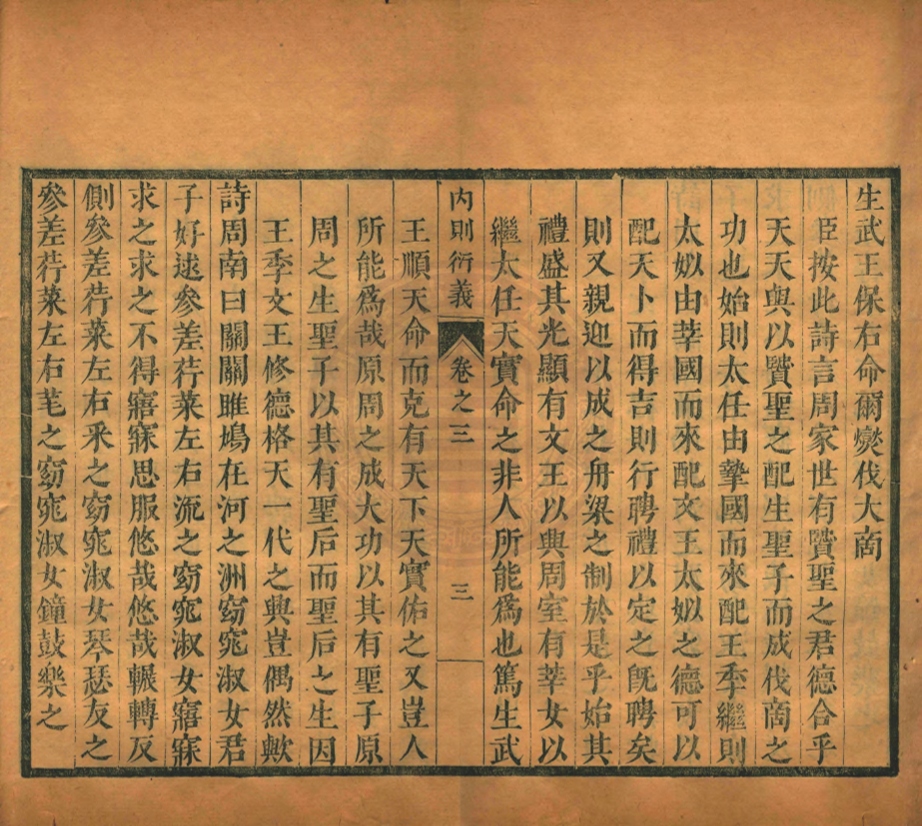 生武王保右命爾燮伐大商
臣按此詩言周家世有賢聖之君德合乎
天天與以賢聖之配生聖子而成伐商之
功也始則太任由摯國而來配王季繼則
太姒由莘國而來配文王太姒之德可以
配天卜而得吉則行聘禮以定之旣聘矣
則又親迎以成之舟梁之制於是乎始其
禮盛其光顯有文王以興周室有莘女以
繼太任天實命之非人所能爲也篤生武
內則衍義 卷之三 三
王順天命而克有天下天實佑之又豈人
所能爲哉原周之成大功以其有聖子原
周之生聖子以其有聖后而聖后之生因
王季文王修德格天一代之興豈偶然歟
詩周南曰關關雎鳩在河之洲窈窕淑女君
子好逑參差荇菜左右流之窈窕淑女寤寐
求之求之不得寤寐思服悠哉悠哉輾轉反
側參差荇菜左右采之窈窕淑女琴瑟友之
參差荇菜左右芼之窈窕淑女鐘鼓樂之